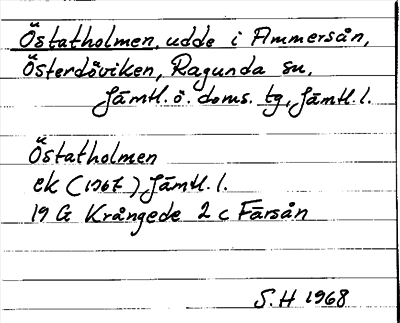 Östatholmen, udde i Ammersån,
Österdöviken, Ragunda sn,
Jämtl. ö. doms. tg, Jämtl. l.
Östatholmen
ek (1967) Jämtl. l.
19 G Krångede 2 c Färsån
S.H 1968